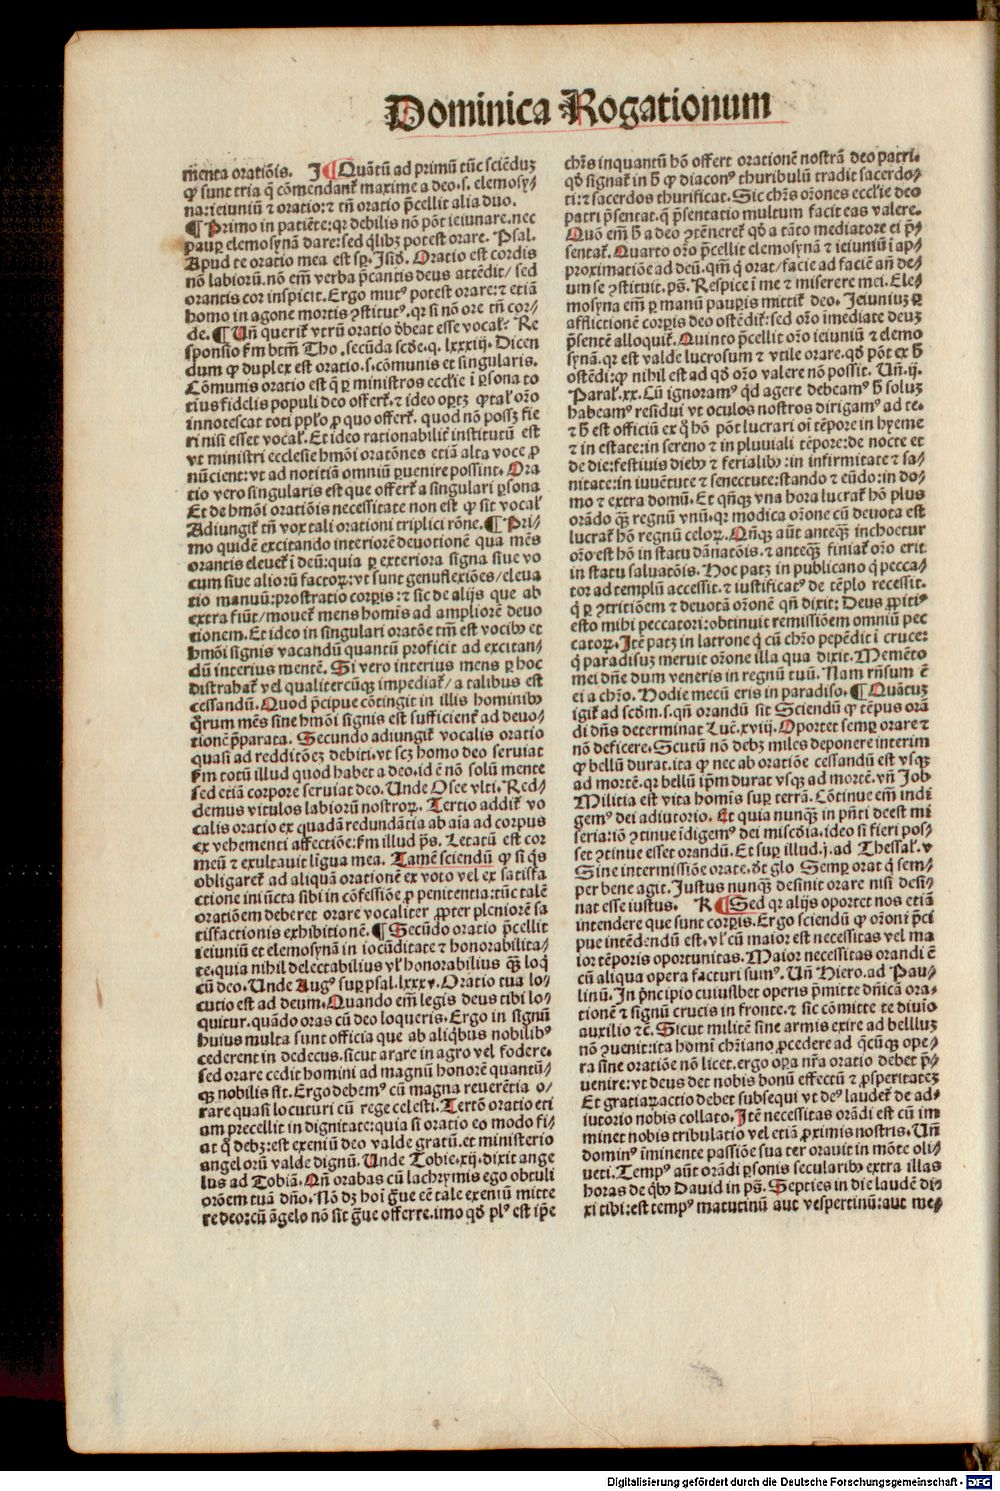 Dominica Rogationum
mẽnta oratiõis. I ¶ Quãtũ ad primũ tũc sciẽduz
ꝙ sunt tria q̃ cõmendant᷑ maxime a deo.s. elemosy⸗
na:ieiuniũ ⁊ oratio:⁊ tñ oratio p̃cellit alia duo.
¶ Primo in patiẽte:qꝛ debilis nõ põt ieiunare.nec
pauꝑ elemosynã dare:sed q̃libꝫ potest orare. Psal.
Apud te oratio mea est sꝑ. Jsid̃. Oratio est cordis
nõ labiorũ.nõ em̃ verba p̃cantis deus attẽdit/ sed
orantis cor inspicit. Ergo mutꝰ potest orare:⁊ etiã
homo in agone mortis ꝯstitutꝰ.qꝛ si nõ ore tñ cor⸗
de. ¶ Uñ querit᷑ vtrũ oratio d̃beat esse vocal᷑: Re
sponsio ẜm btm̃ Tho.secũda scd̃e.q. lxxxiij. Dicen
dum ꝙ duplex est oratio.s.cõmunis et singularis.
Cõmunis oratio est q̃ ꝑ ministros eccl̃ie ĩ ꝑsona to
tius fidelis populi deo offert᷑.⁊ ideo oꝑtꝫ ꝙ tal᷑ or̃o
innotescat toti ppl̃o ꝓ quo offert᷑. quod nõ possꝫ fie
ri nisi esset vocal᷑. Et ideo rationabilit᷑ institutũ est
vt ministri ecclesie hmõi oratõnes etiã alta voce ꝓ
nũcient:vt ad notitiã omniũ ꝑuenire possint. Ora
tio vero singularis est que offert᷑ a singulari ꝑsona
Et de hmõi oratiõis necessitate non est ꝙ sit vocal᷑
Adiungit᷑ tñ vox tali orationi triplici rõne. ¶ Pri⸗
mo quidẽ excitando interiorẽ deuotionẽ qua mẽs
orantis eleuet᷑ ĩ deũ:quia ꝑ exteriora signa siue vo
cum siue alioꝝ factoꝝ:vt sunt genuflexiões/eleua
tio manuũ:prostratio corꝑis:⁊ sic de alijs que ab
extra fiũt/mouet᷑ mens homĩs ad ampliorẽ deuo
tionem. Et ideo in singulari oratõe tm̃ est vocibꝰ et
hmõi signis vacandũ quantũ proficit ad excitan⸗
dũ interius mentẽ. Si vero interius mens ꝑ hoc
distrahat᷑ vel qualitercũqꝫ impediat᷑/a talibus est
cessandũ. Quod p̃cipue cõtingit in illis hominibꝰ
q̃rum mẽs sine hmõi signis est sufficient᷑ ad deuo⸗
tionẽ p̃parata. Secundo adiungit᷑ vocalis oratio
quasi ad redditõeꝫ debiti.vt scꝫ homo deo seruiat
ẜm totũ illud quod habet a deo.id ẽ nõ solũ mente
sed etiã corpore seruiat deo. Unde Osee vlti. Red⸗
demus vitulos labiorũ nostroꝝ. Tertio addit᷑ vo
calis oratio ex quadã redundãtia ab aĩa ad corpus
ex vehementi affectiõe:ẜm illud p̃s. Letatũ est cor
meũ ⁊ exultauit lĩgua mea. Tamẽ sciendũ ꝙ si q̃s
obligaret᷑ ad aliquã orationẽ ex voto vel ex satisfa
ctione iniũcta sibi in cõfessiõe ꝓ penitentia:tũc talẽ
oratiõem deberet orare vocaliter ꝓpter pleniorẽ sa
tisfactionis exhibitionẽ. ¶ Secũdo oratio p̃cellit
ieiuniũ et elemosynã in iocũditate ⁊ honorabilita⸗
te.quia nihil delectabilius vl᷑ honorabilius qꝫ̃ loq̃
cũ deo. Unde Augꝰ suꝑ psal.lxxxv. Oratio tua lo⸗
cutio est ad deum. Quando em̃ legis deus tibi lo⸗
quitur.quãdo oras cũ deo loqueris. Ergo in signũ
huius multa sunt officia que ab aliq̃bus nobilibꝰ
cederent in dedecus.sicut arare in agro vel fodere.
sed orare cedit homini ad magnũ honorẽ quantũ⸗
qꝫ nobilis sit. Ergo debemꝰ cũ magna reuerẽtia o⸗
rare quasi locuturi cũ rege celesti. Tertõ oratio eti
am precellit in dignitate:quia si oratio eo modo fi⸗
at q̃ debꝫ:est exeniũ deo valde gratũ.et ministerio
angelorũ valde dignũ. Unde Tobie.xij.dixit ange
lus ad Tobiã. Qñ orabas cũ lachrymis ego obtuli
orõem tuã dño. Nõ dꝫ hoĩ g̃ue eẽ tale exeniũ mitte
re deo:cũ ãgelo nõ sit g̃ue offerre.imo qd̃ plꝰ est ip̃e
chr̃s inquantũ hõ offert orationẽ nostrã deo patri.
qd̃ signat᷑ in h̃ ꝙ diaconꝰ thuribulũ tradit sacerdo⸗
ti:⁊ sacerdos thurificat. Sic chr̃s or̃ones eccl̃ie deo
patri p̃sentat.q̃ p̃sentatio multum facit eas valere.
Quõ em̃ h̃ a deo ꝯtẽneret᷑ qd̃ a tãto mediatore ei p̃⸗
sentat᷑. Quarto or̃o p̃cellit elemosynã ⁊ ieiuniũ ĩ ap⸗
proximatiõe ad deũ.qm̃ q̃ orat/facie ad faciẽ añ de⸗
um se ꝯstituit.ps̃. Respice ĩ me ⁊ miserere mei. Ele⸗
mosyna em̃ ꝑ manũ pauꝑis mittit᷑ deo. Jeiuniuꝫ ꝑ
afflictionẽ corꝑis deo ostẽdit᷑:sed or̃o ĩmediate deuꝫ
p̃sentẽ alloquit᷑. Quinto p̃cellit or̃o ieiuniũ ⁊ elemo
synã.qꝛ est valde lucrosum ⁊ vtile orare.qd̃ põt ex h̃
ostẽdi:ꝙ nihil est ad qd̃ or̃o valere nõ possit. Uñ.ij.
Paral᷑.xx. Cũ ignoramꝰ q̃d agere debeamꝰ h̃ soluꝫ
habeamꝰ residui vt oculos nostros dirigamꝰ ad te.
⁊ h̃ est officiũ ex q̃ hõ põt lucrari oĩ tẽpore in hyeme
⁊ in estate:in sereno ⁊ in pluuiali tẽpore:de nocte et
de die:festiuis diebꝰ ⁊ ferialibꝰ:in infirmitate ⁊ sa⸗
nitate:in iuuẽtute ⁊ senectute:stando ⁊ eũdo:in do⸗
mo ⁊ extra domũ. Et qñqꝫ vna hora lucrat᷑ hõ plus
orãdo qꝫ̃ regnũ vnũ.qꝛ modica or̃one cũ deuota est
lucrat᷑ hõ regnũ celoꝝ. Qñqꝫ aũt anteqꝫ̃ inchoetur
or̃o est hõ in statu dãnatõis.⁊ anteqꝫ̃ finiat᷑ or̃o erit
in statu saluatõis. Hoc patꝫ in publicano q̃ pecca⸗
tor ad templũ accessit.⁊ iustificatꝰ de tẽplo recessit.
q̃ ꝑ ꝯtritiõem ⁊ deuotã or̃onẽ qñ dixit: Deus ꝓpitiꝰ
esto mihi peccatori:obtinuit remissiõem omniũ pec
catoꝝ. Itẽ patꝫ in latrone q̃ cũ chr̃o pepẽdit ĩ cruce:
q̃ paradisuꝫ meruit or̃one illa qua dixit. Memẽto
mei dñe dum veneris in regnũ tuũ. Nam rñsum ẽ
ei a chr̃o. Hodie mecũ eris in paradiso. ¶ Quãtuꝫ
igit᷑ ad scd̃m.s.qñ orandũ sit Sciendũ ꝙ tẽpus orã
di dñs determinat Luc̃.xviij. Oportet semꝑ orare ⁊
nõ deficere. Scutũ nõ debꝫ miles deponere interim
ꝙ bellũ durat.ita ꝙ nec ab oratiõe cessandũ est vsqꝫ
ad mortẽ.qꝛ bellũ ip̃m durat vsqꝫ ad mortẽ.vñ Job
Militia est vita homĩs suꝑ terrã. Cõtinue em̃ indĩ
gemꝰ dei adiutorio. Et quia nunqꝫ̃ in p̃nti deest mi
seria:iõ ꝯtinue ĩdigemꝰ dei misc̃dia.ideo si fieri pos⸗
set ꝯtinue esset orandũ. Et suꝑ illud.j.ad Thessal᷑.v
Sine intermissiõe orate.d̃t glo Semꝑ orat q̃ sem⸗
per bene agit. Justus nunqꝫ̃ desinit orare nisi desi⸗
nat esse iustus. K ¶ Sed qꝛ alijs oportet nos etiã
intendere que sunt corꝑis. Ergo sciendũ ꝙ or̃oni p̃ci
pue intẽdendũ est.vl᷑ cũ maior est necessitas vel ma
ior tẽporis oportunitas. Maior necessitas orandi ẽ
cũ aliqua opera facturi sumꝰ. Uñ Hiero.ad Pau⸗
linũ. In p̃ncipio cuiuslbet operis p̃mitte dñicã ora⸗
tionẽ ⁊ signũ crucis in fronte.⁊ sic cõmitte te diuio
auxilio ⁊c̃. Sicut militẽ sine armis exire ad bellluꝫ
nõ ꝯuenit:ita homĩ chr̃iano ꝓcedere ad q̃cũqꝫ ope⸗
ra sine oratiõe nõ licet.ergo oꝑa nr̃a oratio debet p̃⸗
uenire:vt deus det nobis bonũ effectũ ⁊ ꝓsperitateꝫ
Et gratiaꝝactio debet subsequi vt deꝰ laudet᷑ de ad⸗
iutorio nobis collato. Itẽ necessitas orãdi est cũ im
minet nobis tribulatio vel etiã ꝓximis nostris. Uñ
dominꝰ ĩminente passiõe sua ter orauit in mõte oli⸗
ueti. Tempꝰ aũt orãdi ꝑsonis secularibꝰ extra illas
horas de q̃bꝰ Dauid in ps̃. Septies in die laudẽ di⸗
xi tibi:est tempꝰ matutinũ aut vespertinũ:aut me⸗
Digitalisierung gefördert durch die Deutsche Forschungsgemeinschaft - DFG